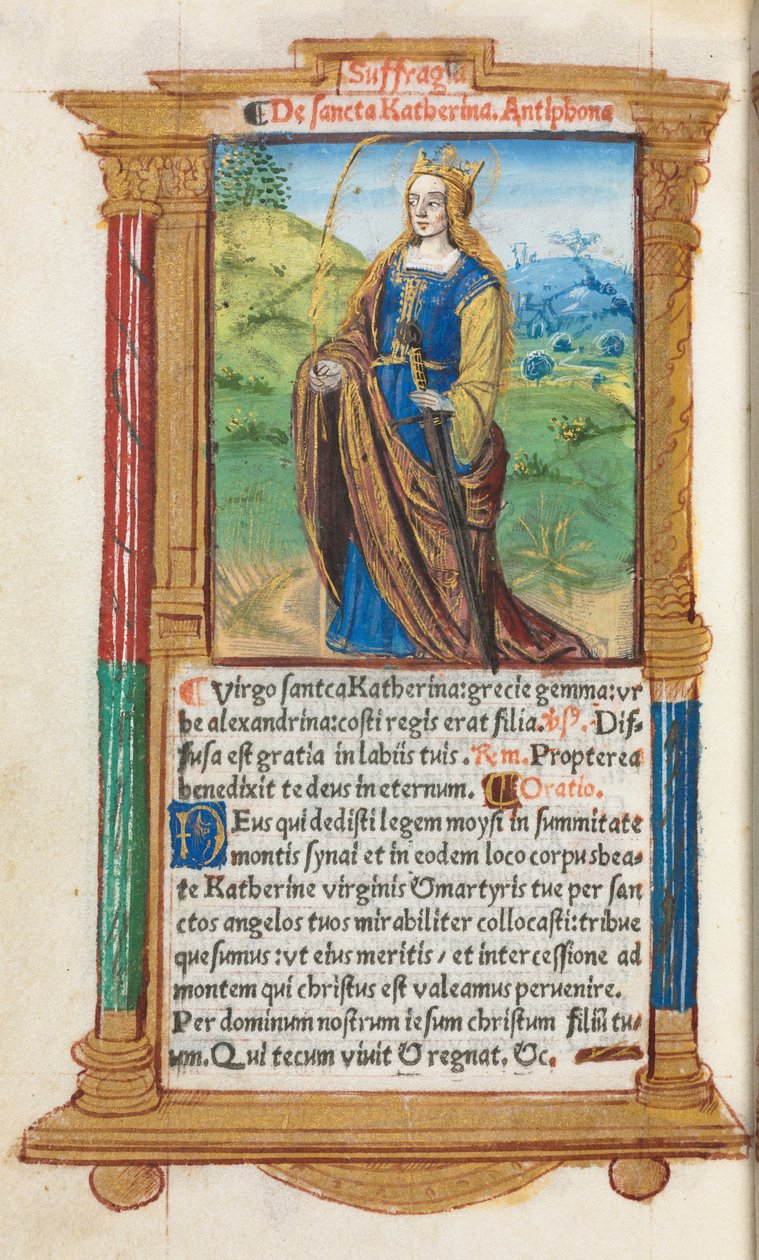 Suffragia
De sancta Katherina. Antiphona
Virgo santca Katherina: grecie gemma: vr
be alexandrina: costi regis erat filia. ℣s9. Dif-
fusa est gratia in labiis tuis. ℟m. Propterea
benedixit te deus in eternum. Oratio.
DEus qui dedisti legem moysi in summitate
montis synai et in eodem loco corpus bea-
te Katherine virginis & martyris tue per san
ctos angelos tuos mirabiliter collocasti: tribue
quesumus: vt eius meritis / et intercessione ad
montem qui christus est valeamus peruenire.
Per dominum nostrum iesum christum filiū tu-
um. Qui tecum viuit & regnat. &c.